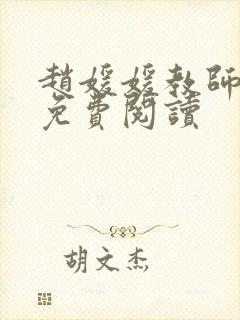 趙媛媛教師
免費閱讀
胡文杰